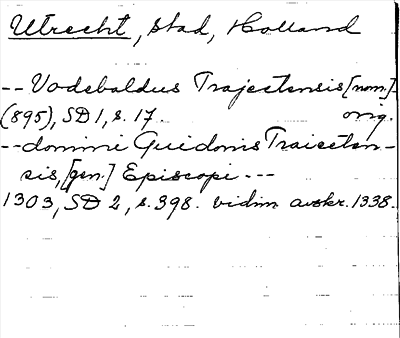 Utrecht, stad, Holland
-- Vodebaldus Trajectensis [nom.]
(895), SD 1, s. 17. orig.
-- domini Guidonis Traiecten-
sis, [gen.] Episcopi ---
1303, SD 2, s. 398. vidim. avskr. 1338.